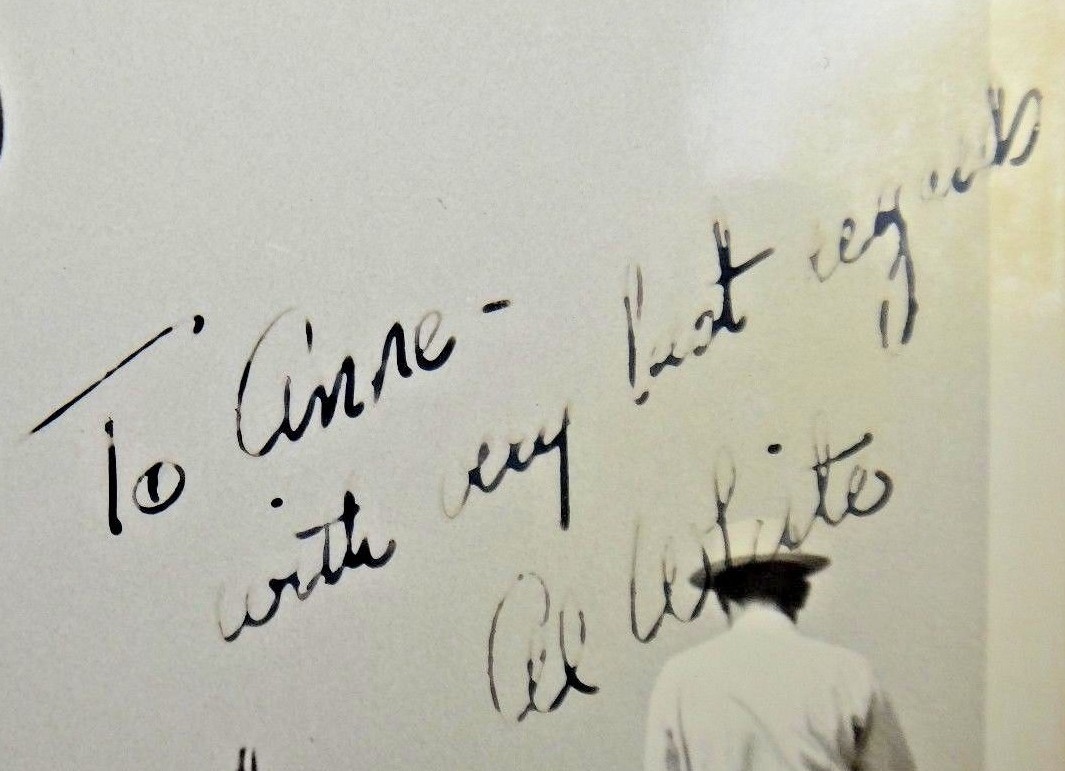 To Anne -
with very best regards
Al White